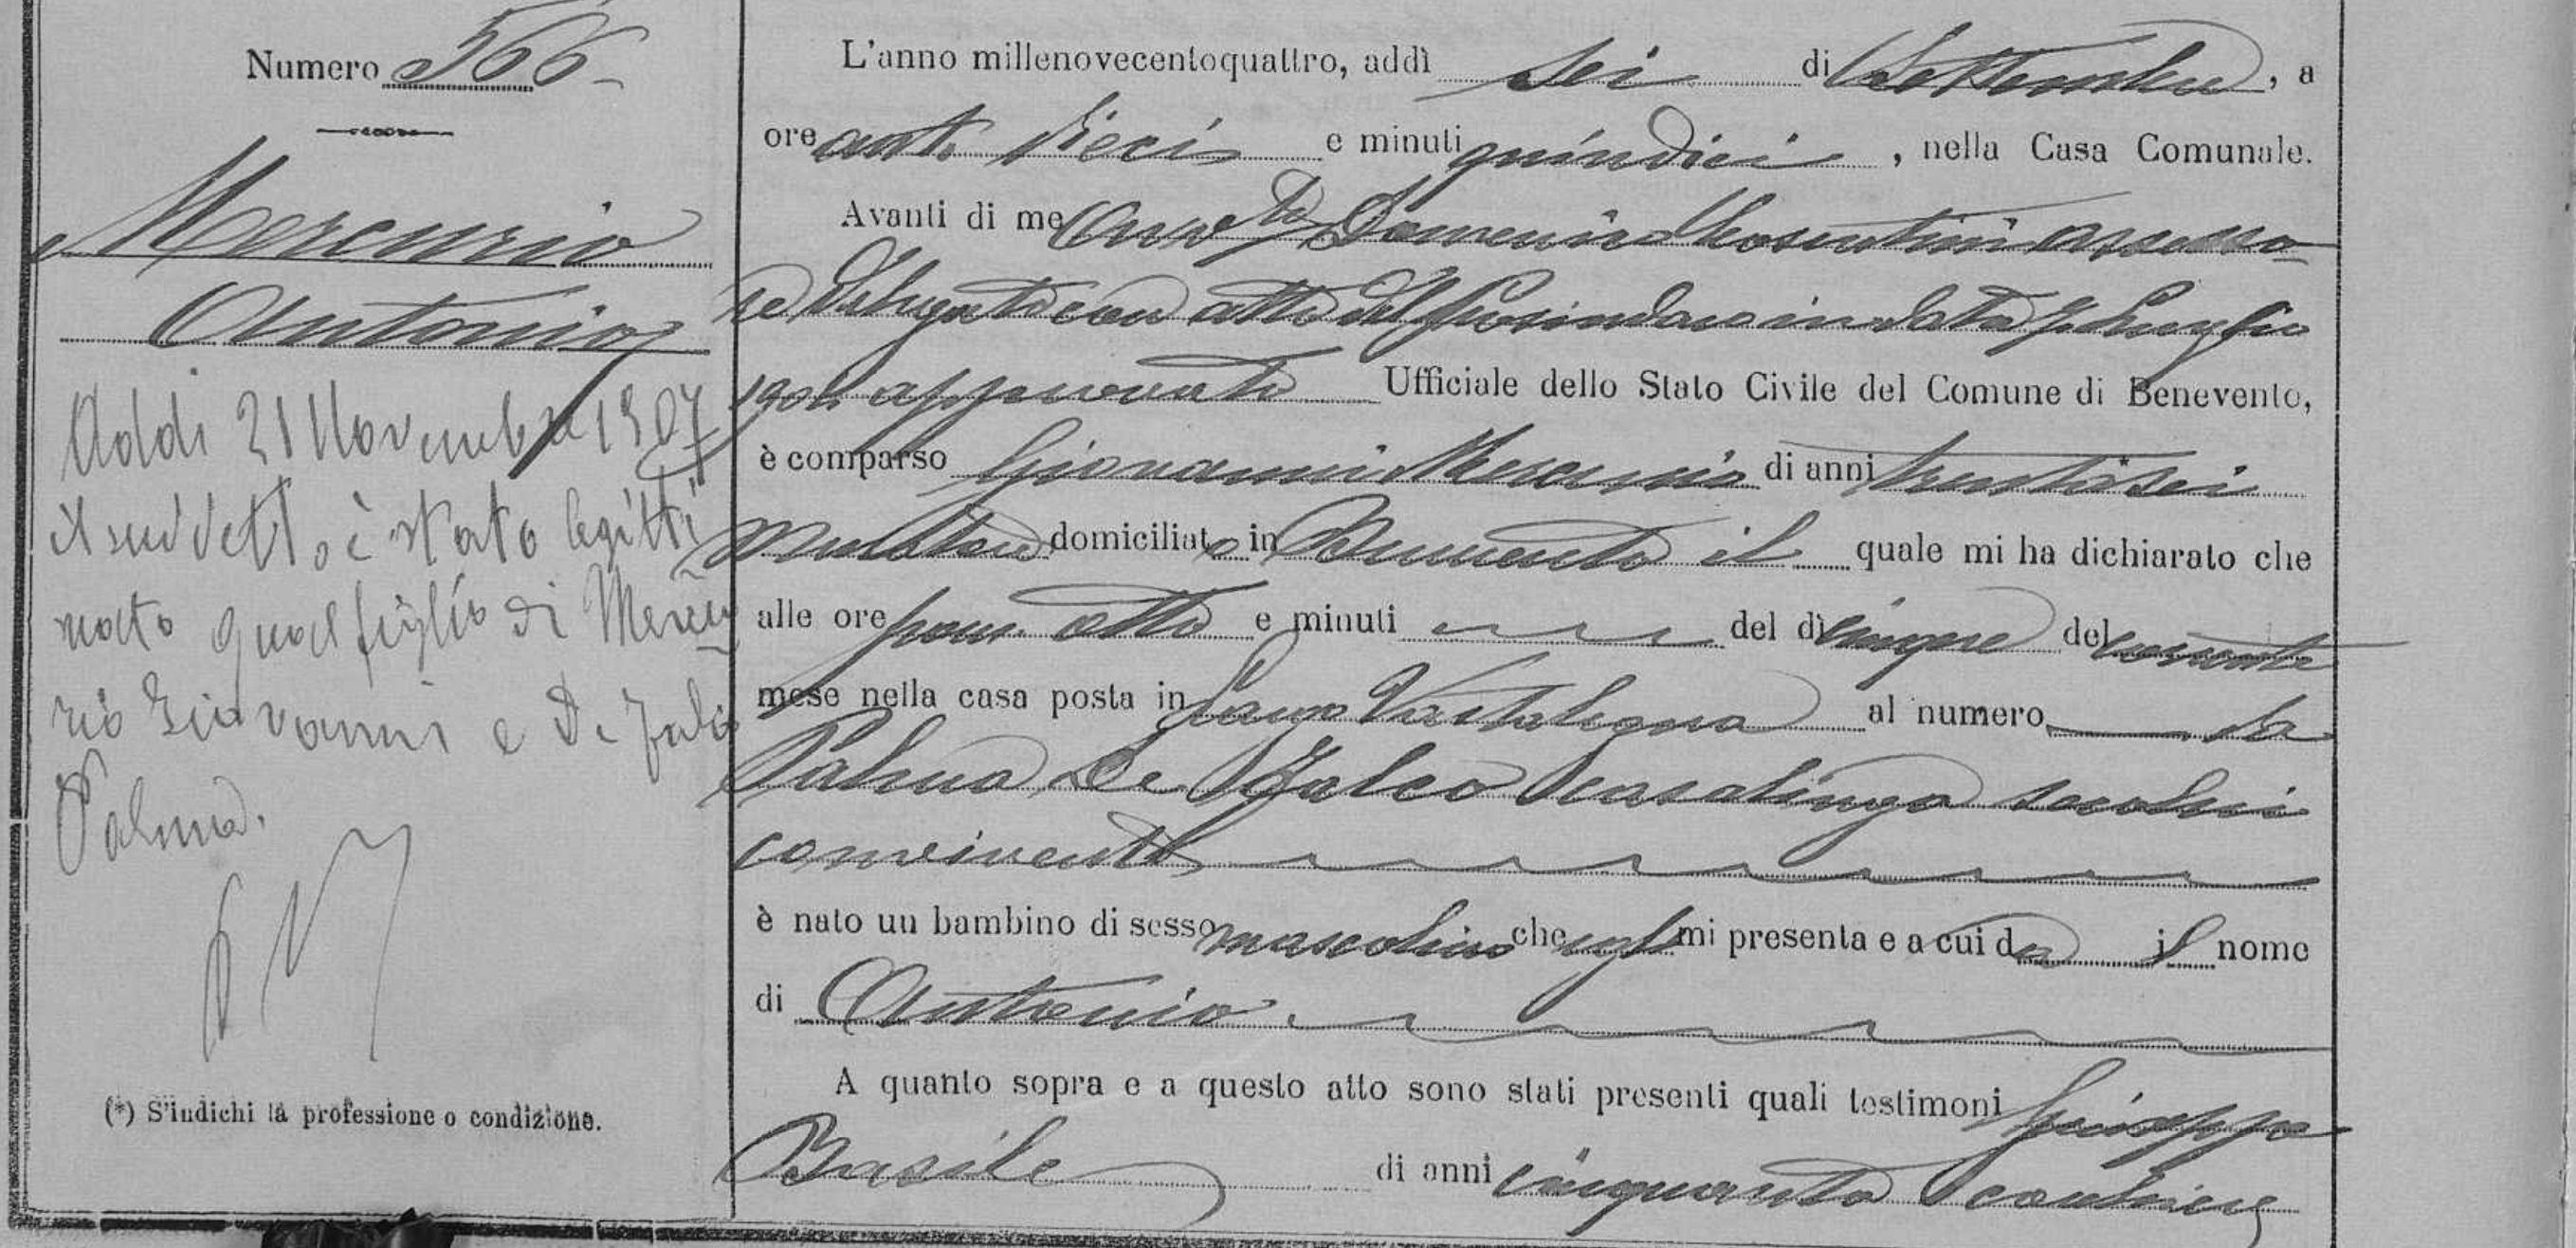 Numero 566
Mercurio
Antonio
Addi 21 Novembre 1907
il suddetto è stato legitti
mato qual figlio di Mercu
rio Giovanni e De Falco
Palma.
(*) S'indichi la professione o condizione.
L'anno millenovecentoquattro, addì sei di Settembre, a
ore ant. dieci e minuti quindici, nella Casa Comunale.
Avanti di me Domenico Cosentini assesso-
re delegato con atto del Prosindaco in data Luglio
approvato Ufficiale dello Stato Civile del Comune di Benevento,
è comparso Giovanni Mercurio di anni trentasei
muratore domiciliato in Benevento il quale mi ha dichiarato che
alle ore pom. otto e minuti del dì cinque del corrente
mese nella casa posta in Largo al numero da
Palma De Falco casalinga seco lui
convivente
è nato un bambino di sesso mascolino che egli mi presenta e a cui da il nome
di Antonio.
A quanto sopra e a questo atto sono stati presenti quali testimoni Giuseppe
Basile di anni cinquanta